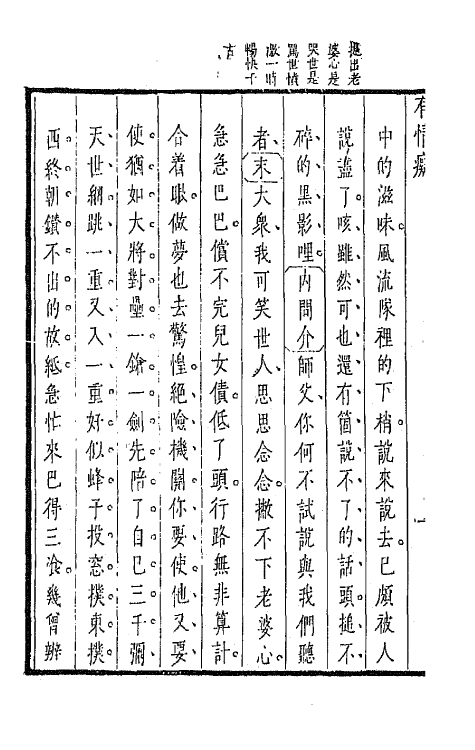 出老
婆心是
哭世是
罵世憤
激一時
暢快千
古
有情癡
一
中的滋味。風流隊裡的下梢。說來說去。已頗被人
說盡了、咳、雖然可也還有箇說不了的話頭、搥不
碎的黑影哩、内問介師父、你何不試說與我們聽
者、末大衆、我可笑世人、思思念念。撇不下老婆心。
急急巴巴。償不完兒女債。低了頭。行路無非算計。
合着眼。做夢也去驚惶。絕險機關、你要使他又要
使。猶如大將對壘。一鎗一劍先陪了自己三千。彌
天世網、跳一重又入一重。好似蜂子投窓。撲東撲
西。終朝鑽不出的故紙。急忙來巴得三飡。幾曾辨